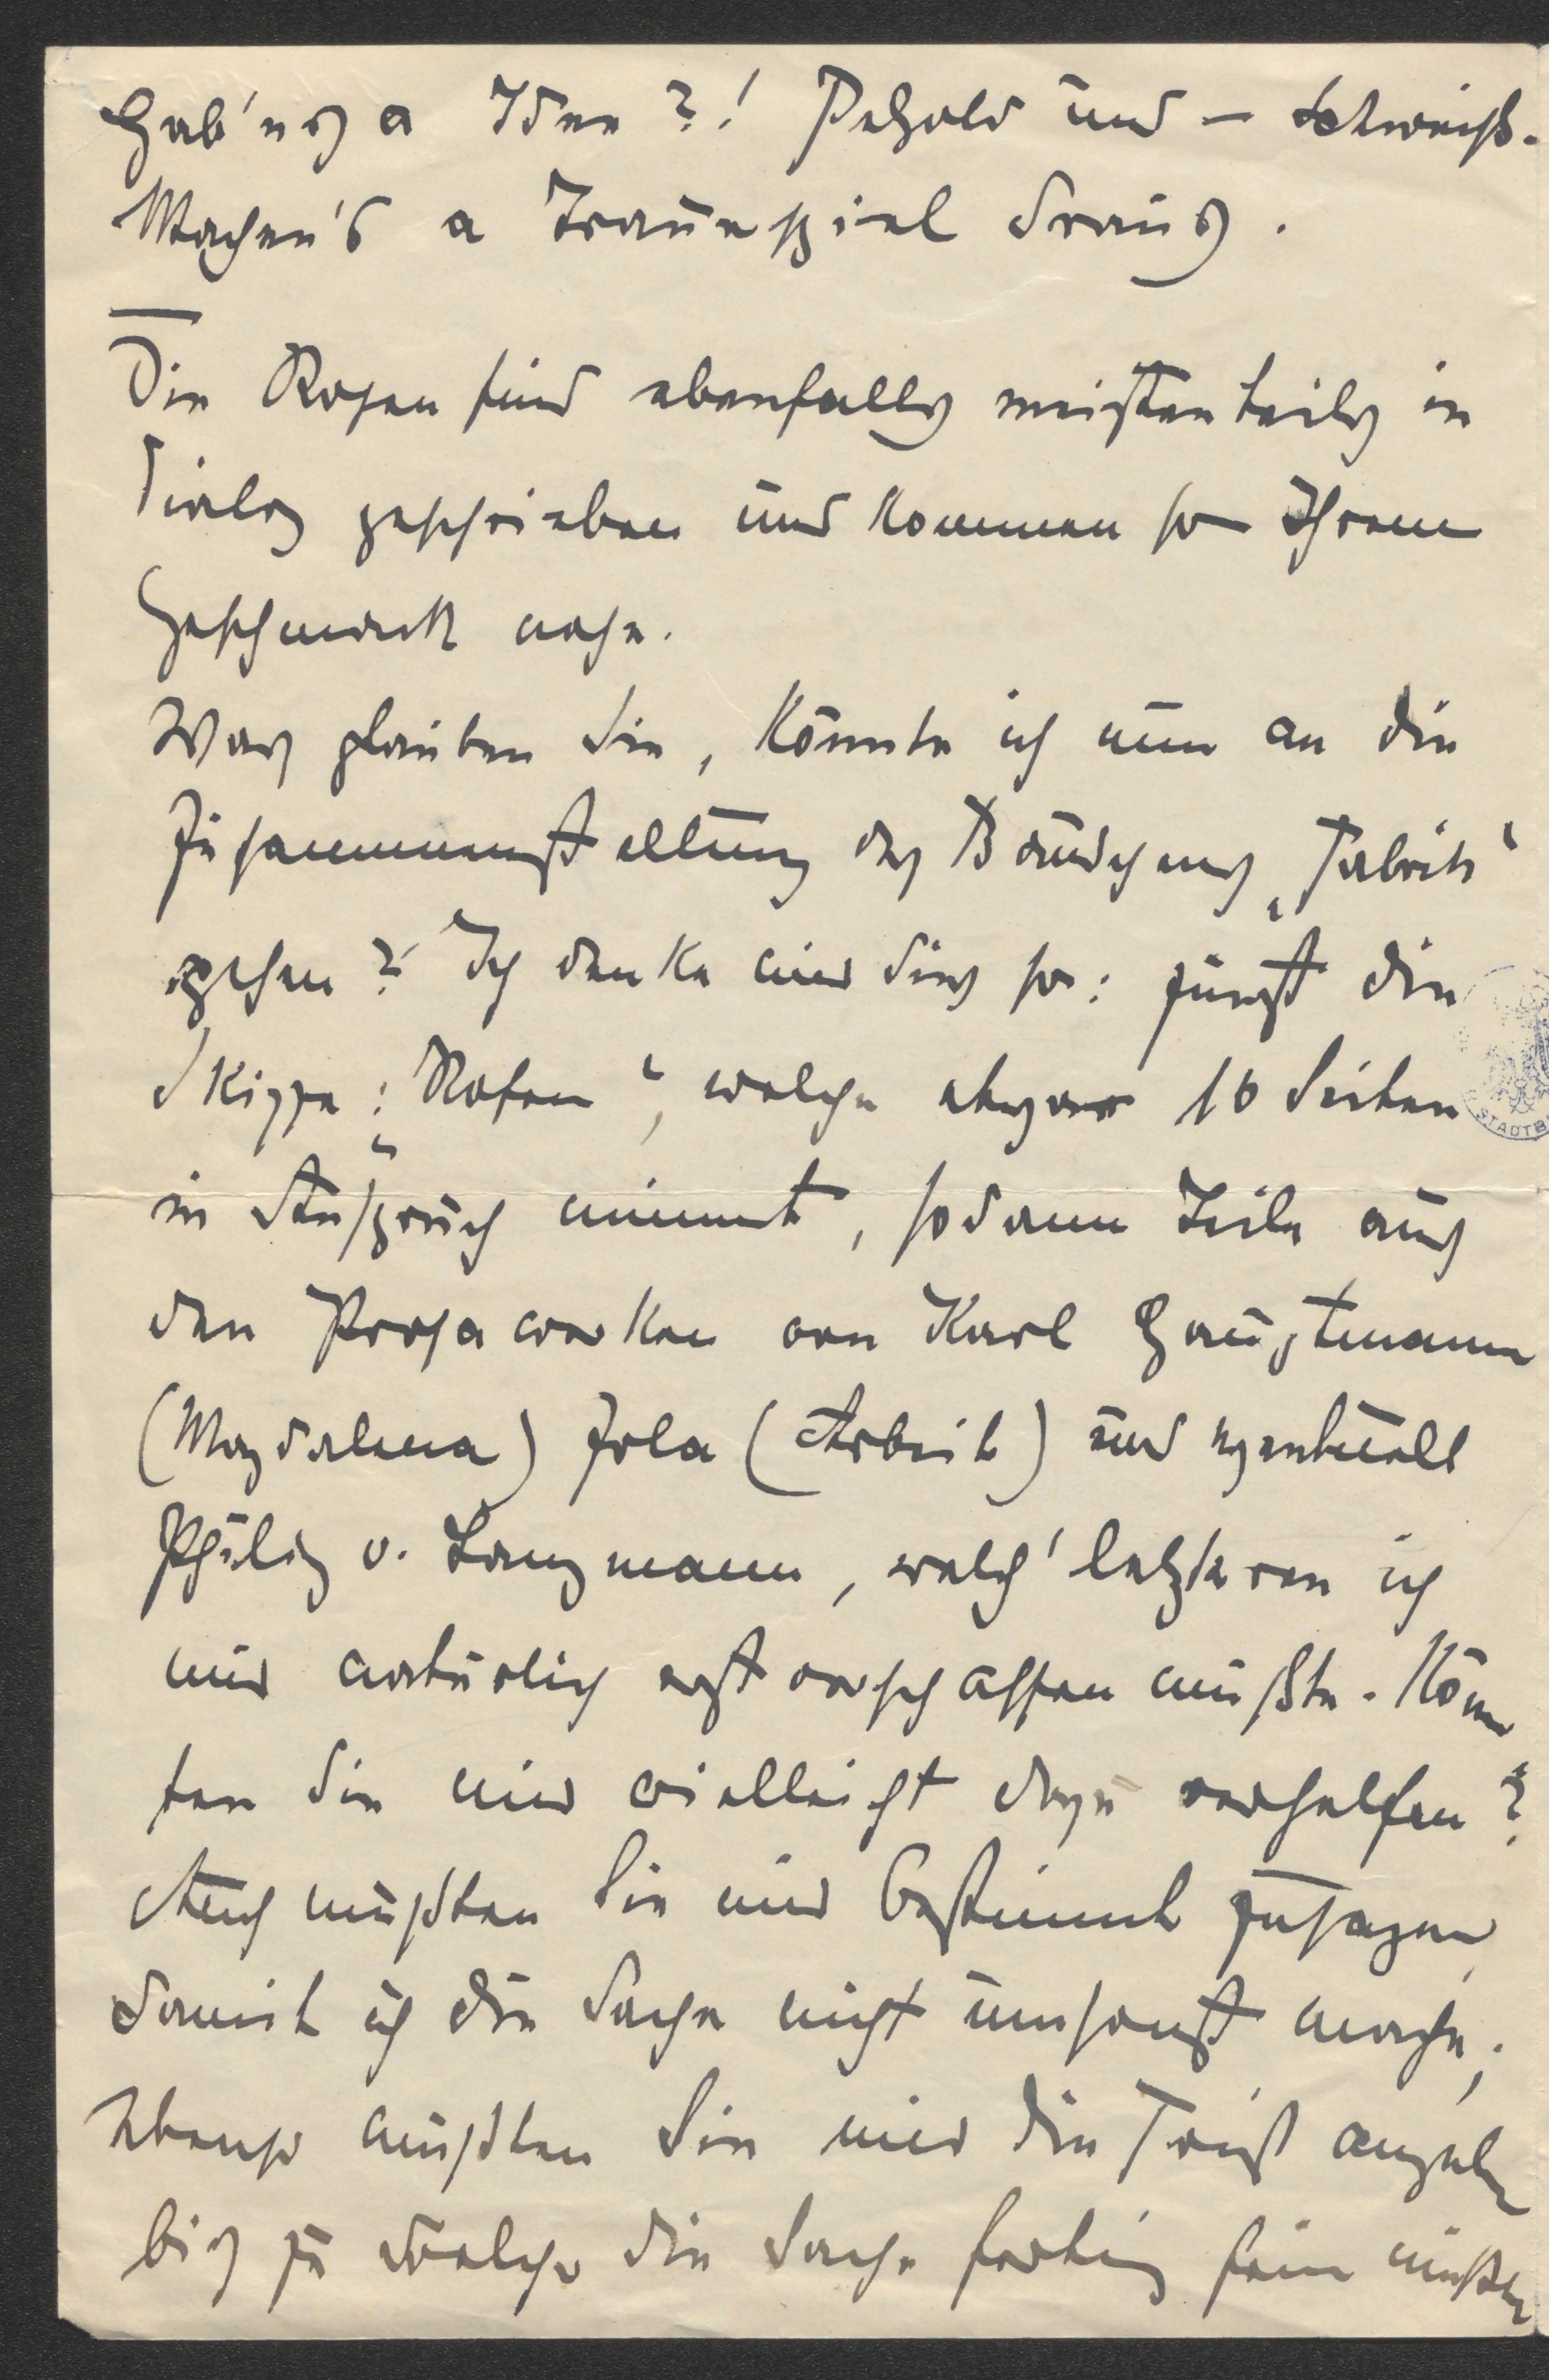 Hab'ns a Idee?! Petzold und – Schweiß.
Machen's a Trauerspiel draus.
Die Rosen sind ebenfalls meistenteils in
Dialog geschrieben und kommen so Ihrem
Geschmack nahe.
Was glauben Sie, könnte ich nun an die
Zusammenstellung des Bändchens „Fabrik“
gehen? Ich denke mir dies so: zuerst die
Skizze: „Rosen“, welche etwa 16 Seiten
in Anspruch nimmt, sodann Teile aus
den Prosawerken von Karl Hauptmann
(Magdalena) Zola (Arbeit) und eventuell
Philip v. Langmann, welch' letzteren ich
mir natürlich erst verschaffen müßte. Könn
ten Sie mir vielleicht dazu verhelfen?
Auch müßten Sie mir bestimmt zusagen,
damit ich die Sache nicht umsonst mache;
Ebenso müßten Sie mir die Frist angeben
bis zu welcher die Sache fertig sein müßte
STADTB